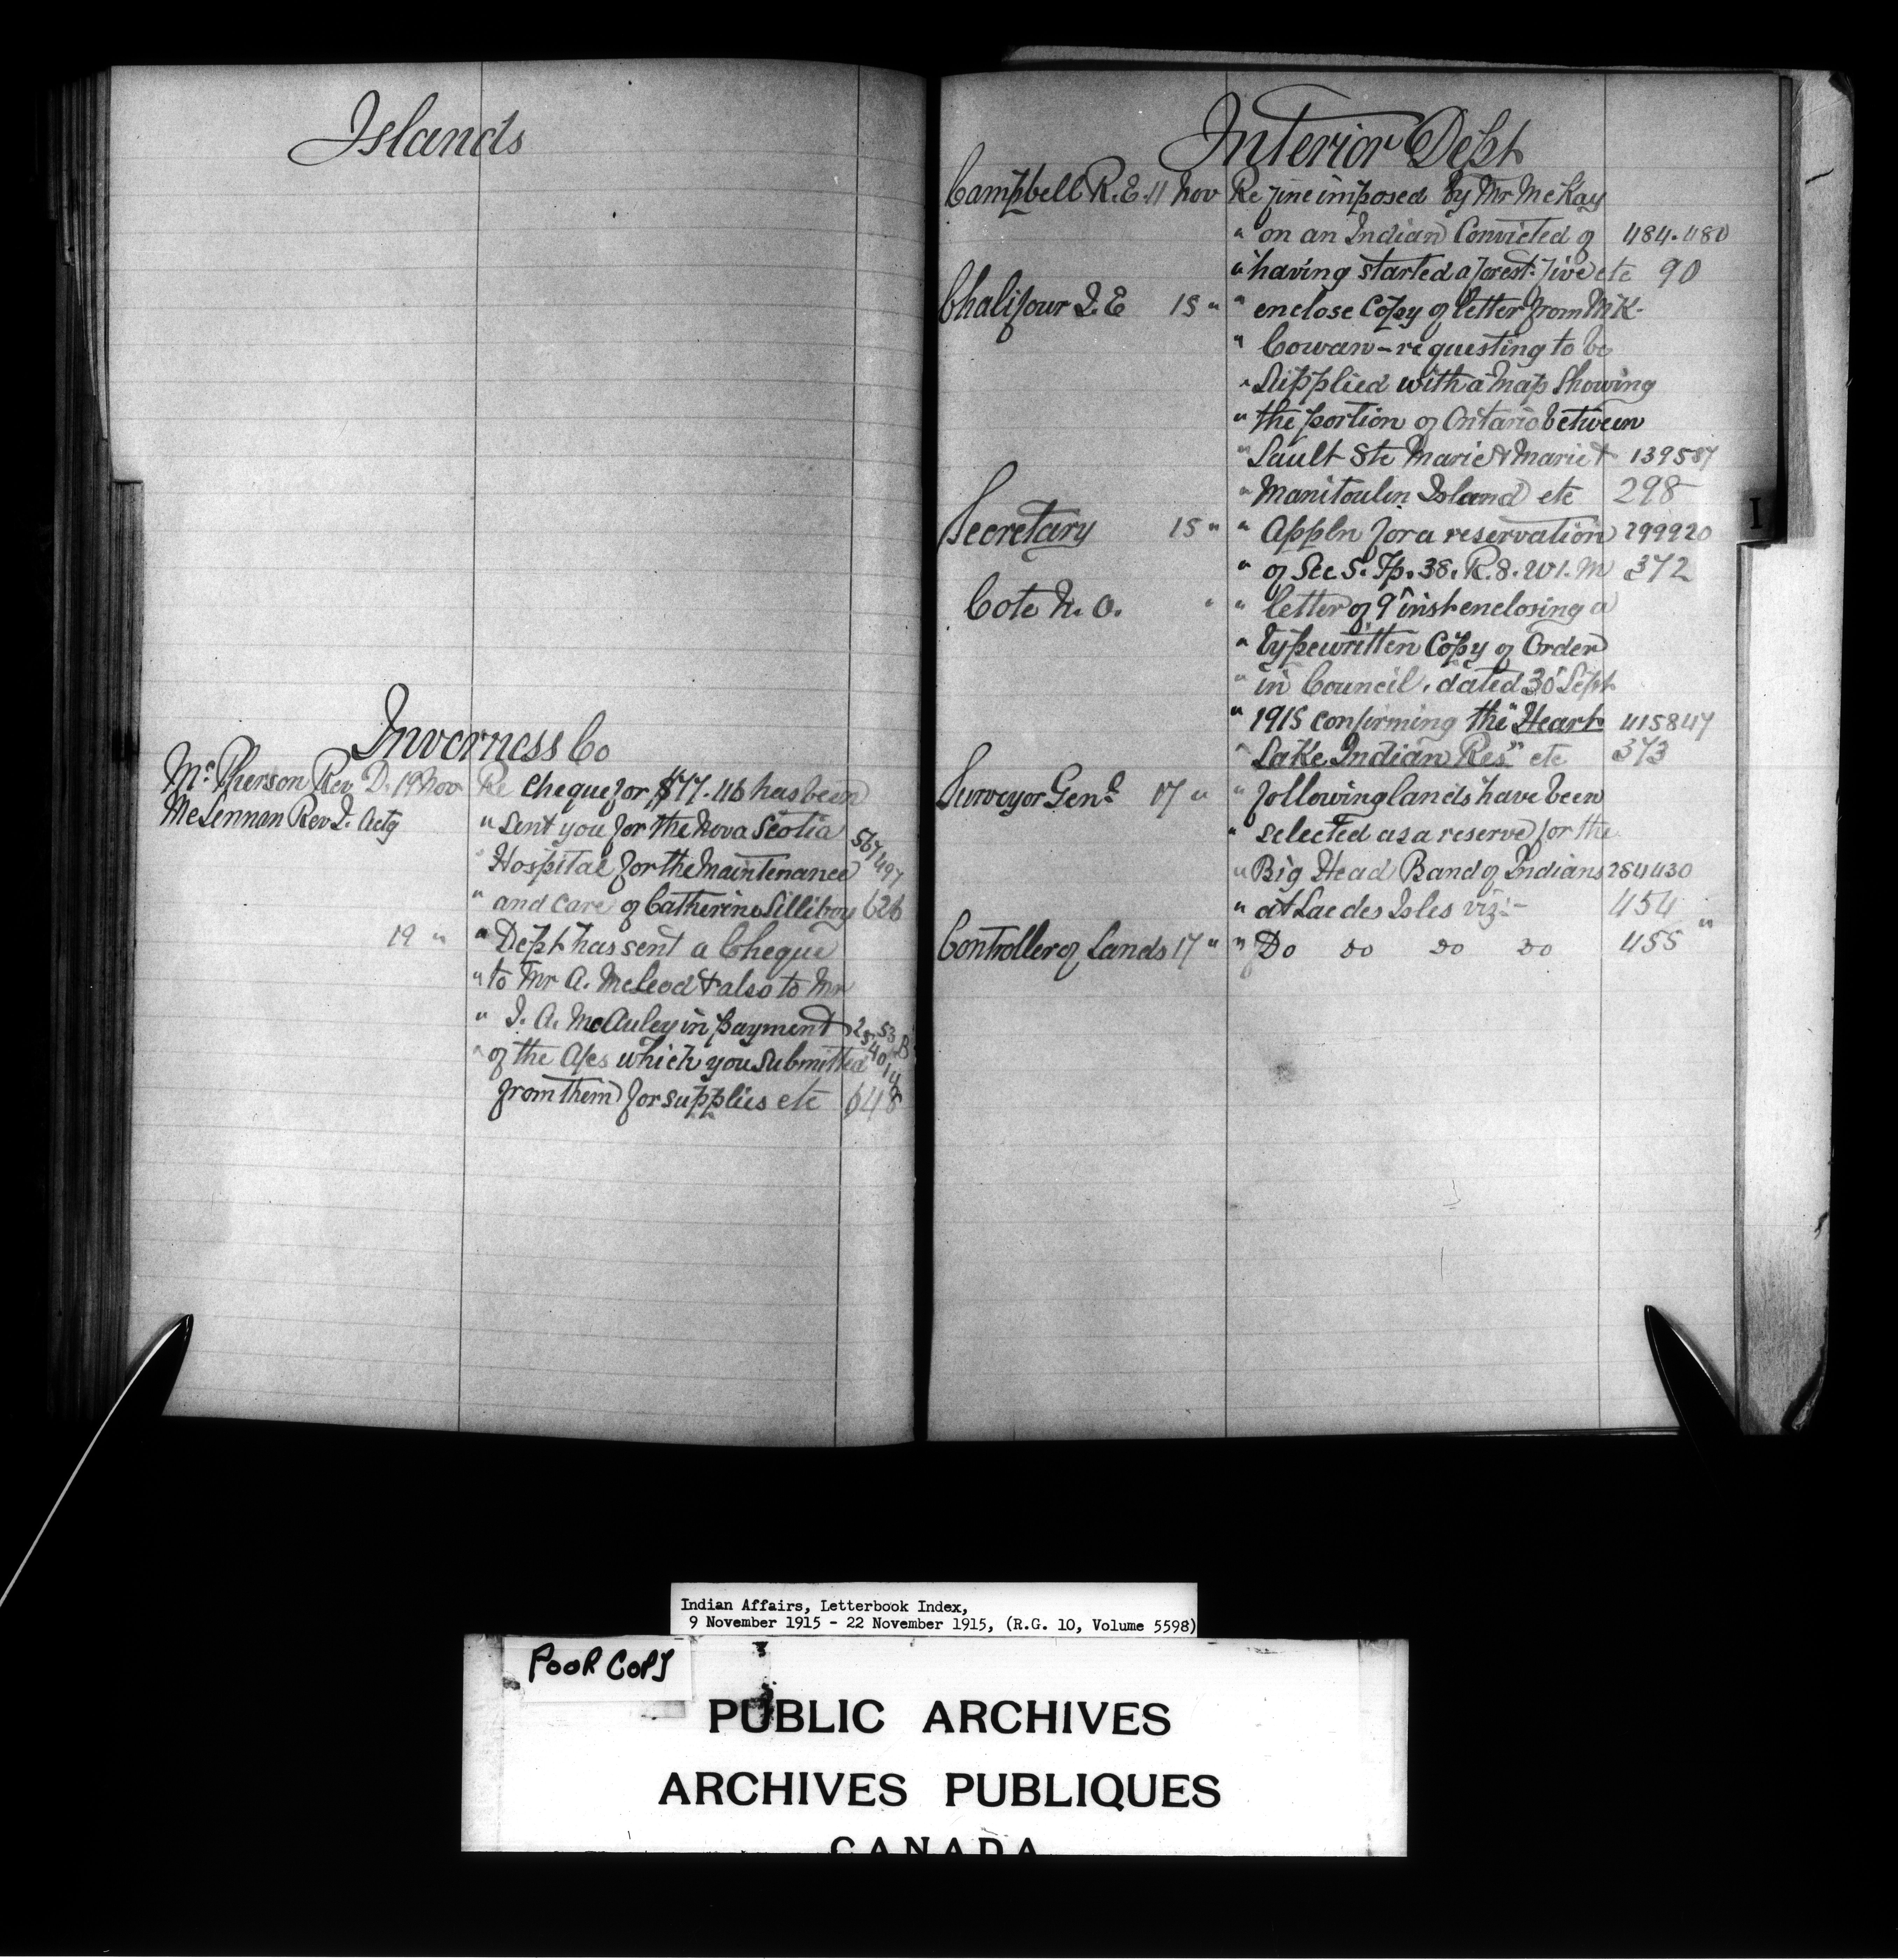 Islands
Inverness Co
McPherson Rev D. 19 Nov Re Cheque for $77.46 has been
McLennan Rev D. Actg " sent you for the Nova Scotia
" Hospital for the Maintenance
" and care of Catherine Silliboy 626
19 " " Dept has sent a Cheque
" to Mr A. McLeod & also to Mr
" J. A. McAuley in payment
" of the A/cs which you submitted
from them for supplies etc 648
Interior Dept
Campbell R. E. 11 Nov Re fine imposed by Mr McKay
" on an Indian Convicted of 484.480
" having started a forest fire etc 90
Chalifour J. E 15 " " enclose Copy of letter from M K.
" Cowan - requesting to be
" Supplied with a map Showing
" the portion of Ontario between
" Sault Ste Marie & Marie & 139587
" Manitoulin Island etc 298
Secretary 15 " " Appln for a reservation 299920
" of Sec 5. Tp. 38. R. 8. W 1. M 372
Cote N. O. " " letter of 9" inst enclosing a
" typewritten Copy of Order
" in Council, dated 30" Sept
" 1915 confirming the "Heart 415847
" Lake Indian Res" etc 373
Surveyor Genl 17 " " following lands have been
" selected as a reserve for the
" Big Head Band of Indians 284430
" at Lac des Isles viz:- 454
Controller of Lands 17 " " Do do do do 455 "
I
Indian Affairs, Letterbook Index,
9 November 1915 - 22 November 1915, (R.G. 10, Volume 5598)
POOR COPY
PUBLIC ARCHIVES
ARCHIVES PUBLIQUES
CANADA